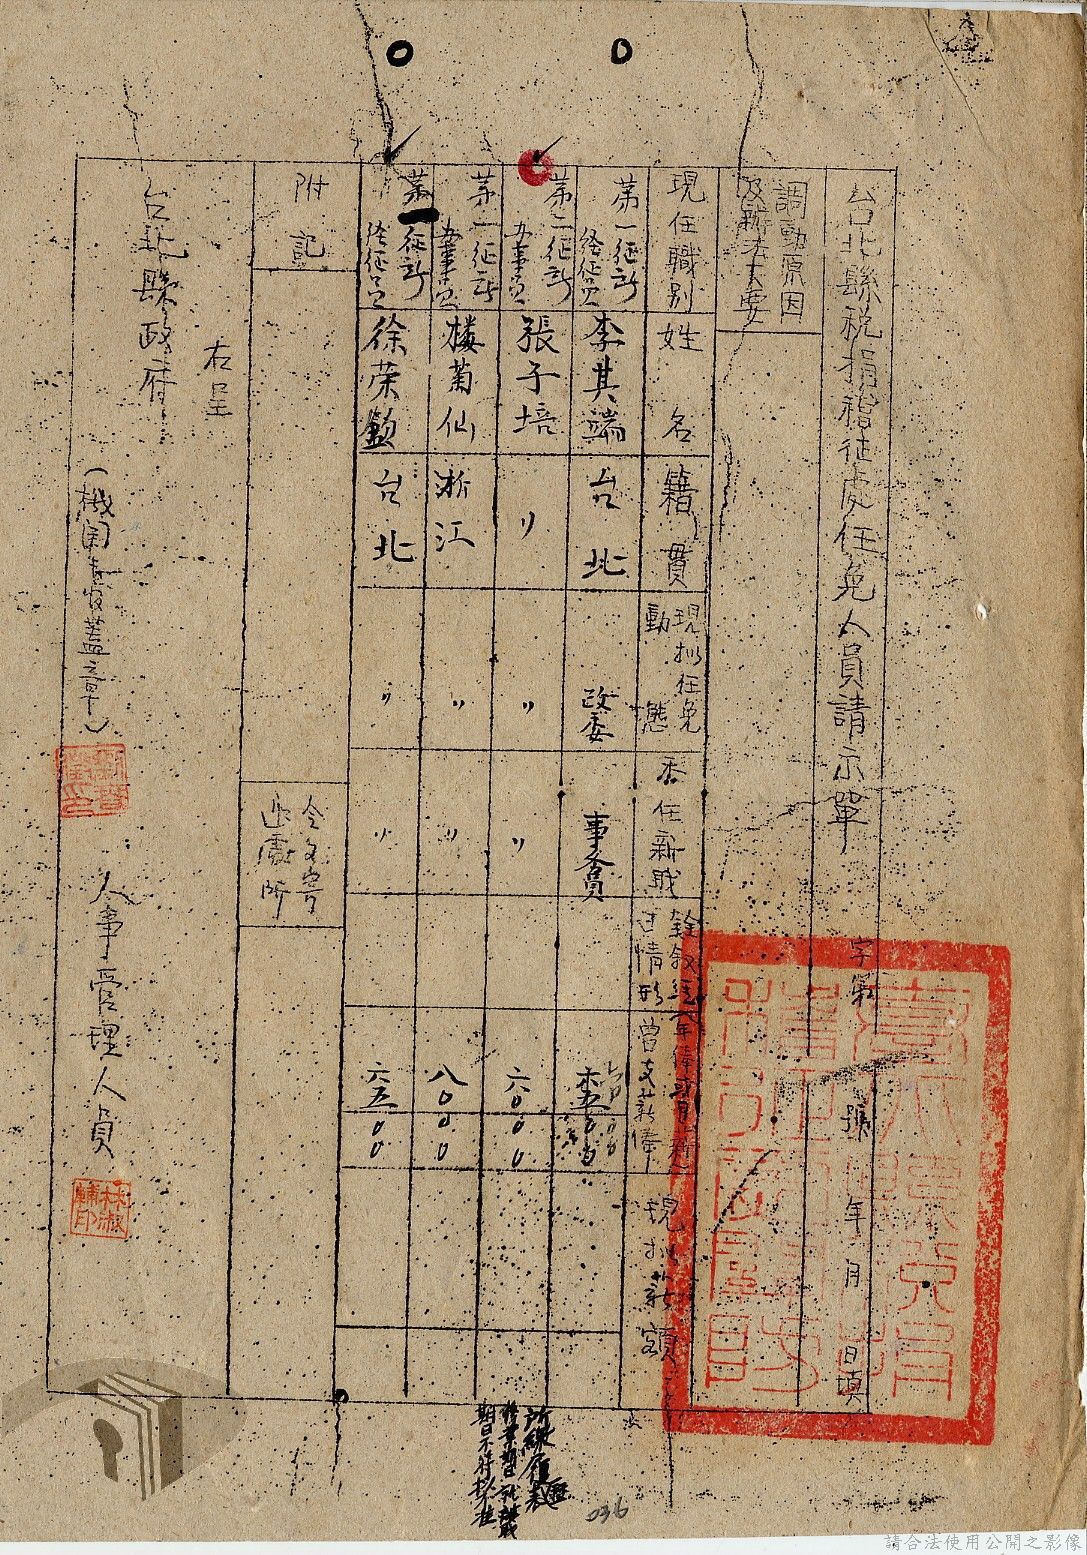 台北縣稅捐稽征處任免人員請示單 字第 號 年 月 日填
調動原因
及辦法大要
現任職別
姓名
籍貫
現拟任免
動態
委任新職
銓敘
情形
曾支薪俸
現拟薪額
第一征所
経征員
李其端
台北
改委
事務員
第二征所
办事員
張子培
〃
〃
〃
六〇〇〇
第一征所
办事員
楼菊仙
浙江
〃
〃
八〇〇〇
第一征所
経征員
徐荣
台北
〃
〃
六五〇〇
附記
令文寄
处所
右呈
台北縣政府
(機関長官蓋章)
人事管理人員
林淑
輔印
036
請合法使用公開之影像